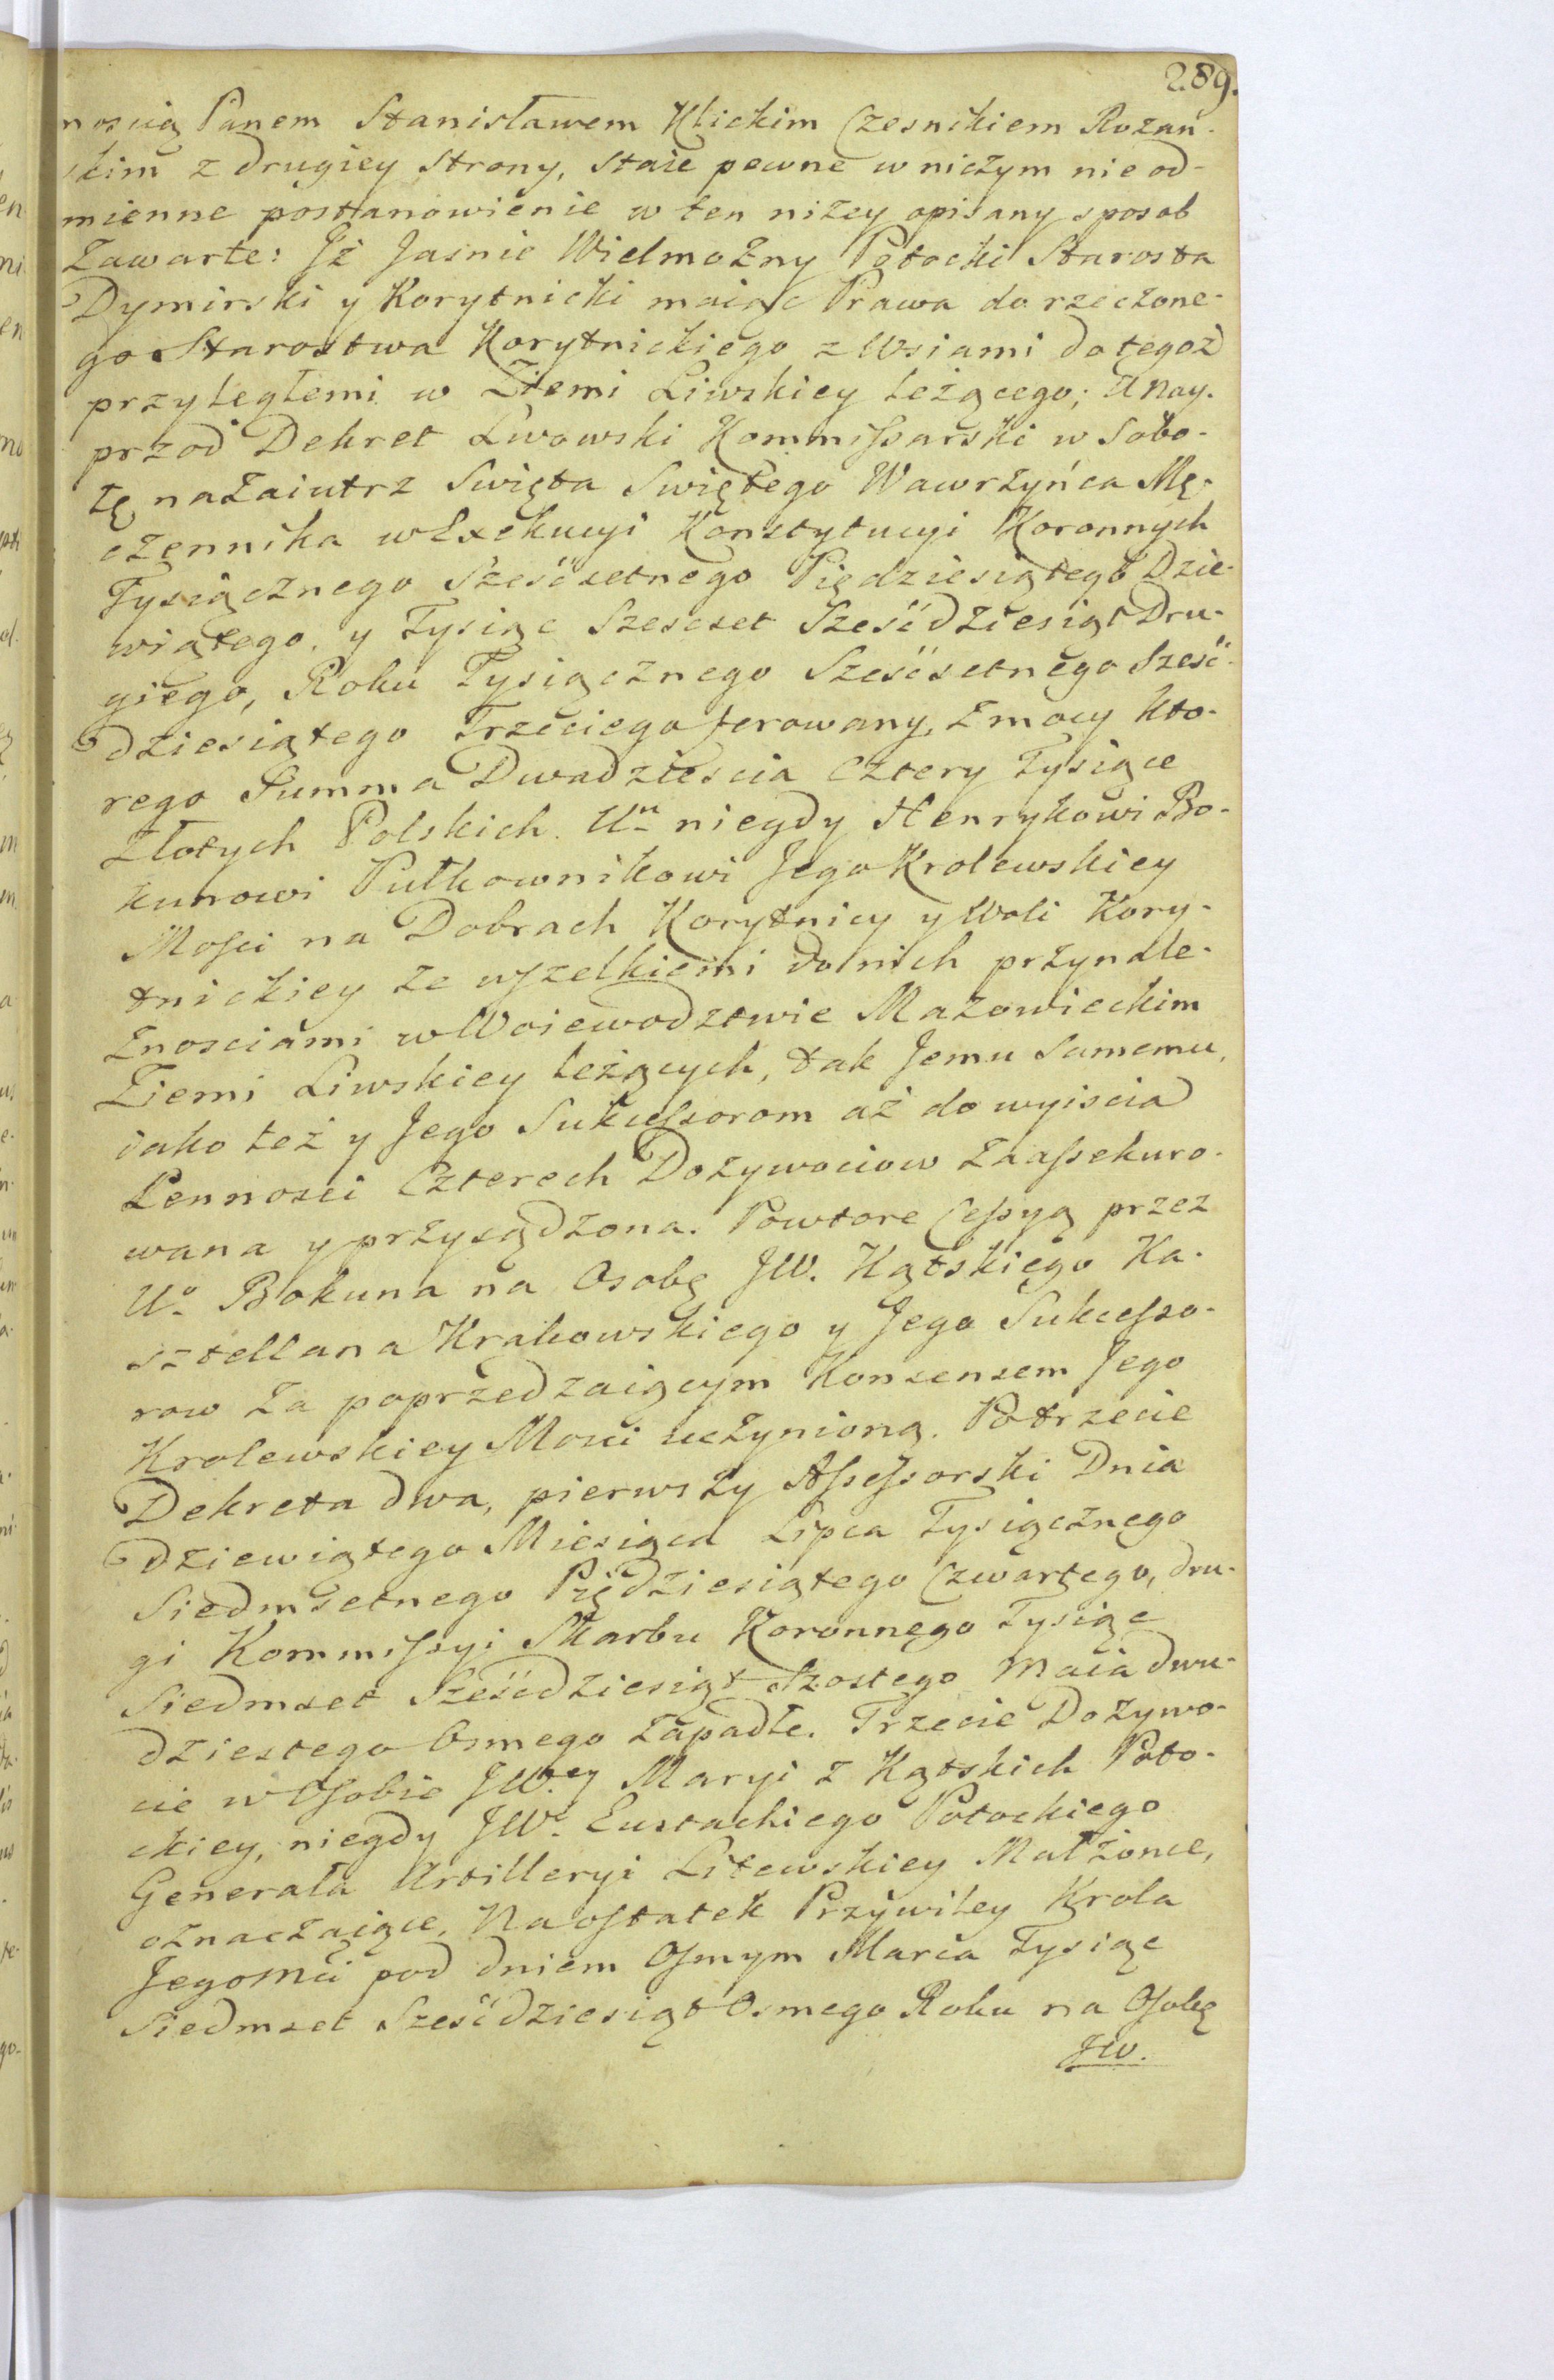 289.
mością Panem Stanisławem Klickim Czesnikiem Rozań-
skim z drugiey strony, staie pewne w niczym nie od-
mienne postanowienie w ten niżey opisany sposob
Zawarte: Jż Jasnie Wielmożny Potocki Starosta
Dymirski y Korytnicki maiąc Prawa do rzeczone-
go Starostwa Korytnickiego z Wsiami do tegoż
przyległemi w Ziemi Liwskiey leżącego; a Nay-
przod Dekret Lwowski Kommissarski w Sobo-
tę nazaiutrz Swięta Swiętego Wawrzyńca Mę-
czennika w Exekucyi Konstytucyi Koronnych
Tysiącznego Sześćsetnego Piędziesiątego Dzie-
wiątego, y Tysiąc Szescset Sześćdziesiąt Dru-
giego, Roku Tysiącznego Sześćsetnego Sześć-
dziesiątego Trzeciego ferowany, z mocy kto-
rego Summa Dwadziescia Cztery Tysiące
Złotych Polskich. Un niegdy Henrykowi Bo-
kunowi Pułkownikowi Jego Krolewskiey
Mosci na Dobrach Korytnicy y Woli Kory-
tnickiey ze wszelkiemi do nich przynale-
żnosciami w Woiewodztwie Mazowieckim
Ziemi Liwskiey leżących, tak Jemu samemu,
iako też y Jego Sukcessorom aż do wyiscia
Lennosci Czterech Dożywociow zaassekuro-
wana y przysądzona. Powtore Cessyą przez
Uo Bokuna na Osobę JW. Kątskiego Ka-
sztellana Krakowskiego y Jego Sukcesso-
row za poprzedzaiącym Konsensem Jego
Krolewskiey Mosci uczynioną. Potrzecie
Dekreta dwa, pierwszy Assessorski Dnia
dziewiątego Miesiąca Lipca Tysiącznego
Siedmsetnego Piędziesiątego Czwartego, dru-
gi Kommissyi Skarbu Koronnego Tysiąc
Siedmset Sześćdziesiąt Szostego Maia dwu-
dziestego Osmego zapadłe. Trzecie Dożywo-
cie w Osobie JW.ey Maryi z Kątskich Poto-
ckiey, niegdy JWo Eustachiego Potockiego
Generała Artilleryi Litewskiey Małżonce,
oznaczaiące, Na ostatek Przywiley Krola
Jegomci pod dniem Osmym Marca Tysiąc
Siedmset Sześćdziesiąt Osmego Roku na Osobę
JW.